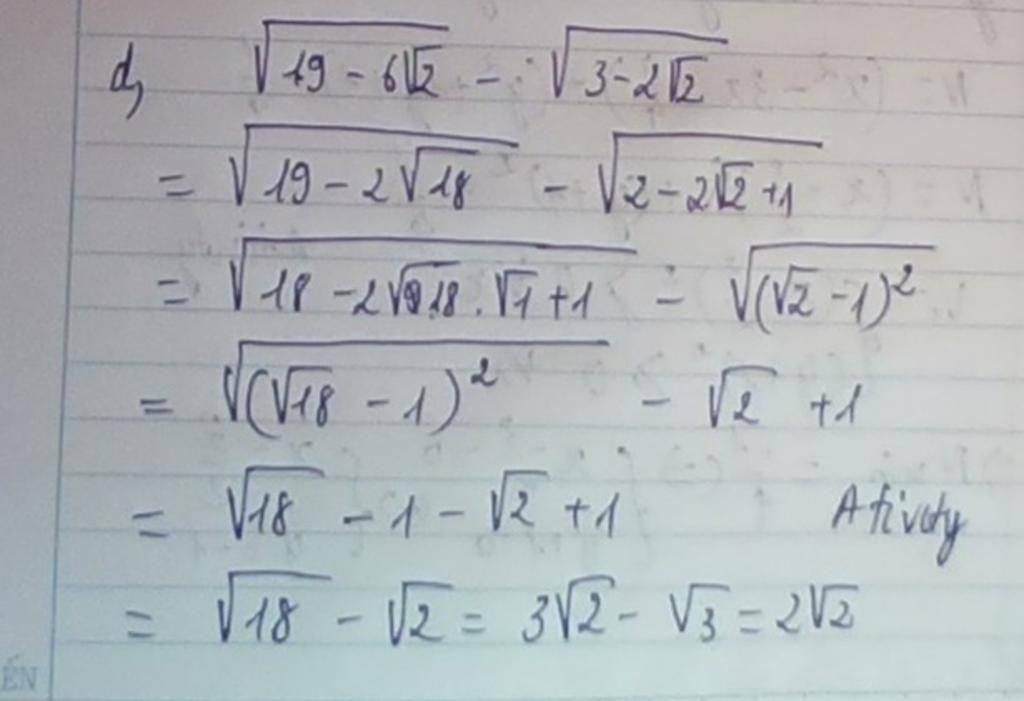 d, √(19 - 6√2) - √(3 - 2√2)
= √(19 - 2√18) - √(2 - 2√2 + 1)
= √(18 - 2√18 . √1 + 1) - √((√2 - 1)²)
= √((√18 - 1)²) - √2 + 1
= √18 - 1 - √2 + 1
= √18 - √2 = 3√2 - √3 = 2√2
ÉN